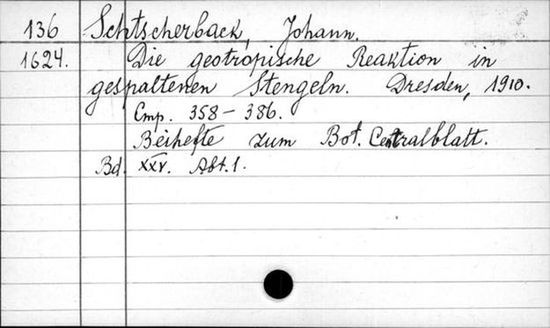 136 Schtscherback, Johann.
1624. Die geotropische Reaktion in
gespaltenen Stengeln. Dresden, 1910.
Стр. 358-386.
Beihefte zum Bot. Centralblatt.
Bd. XXV. Abt. 1.